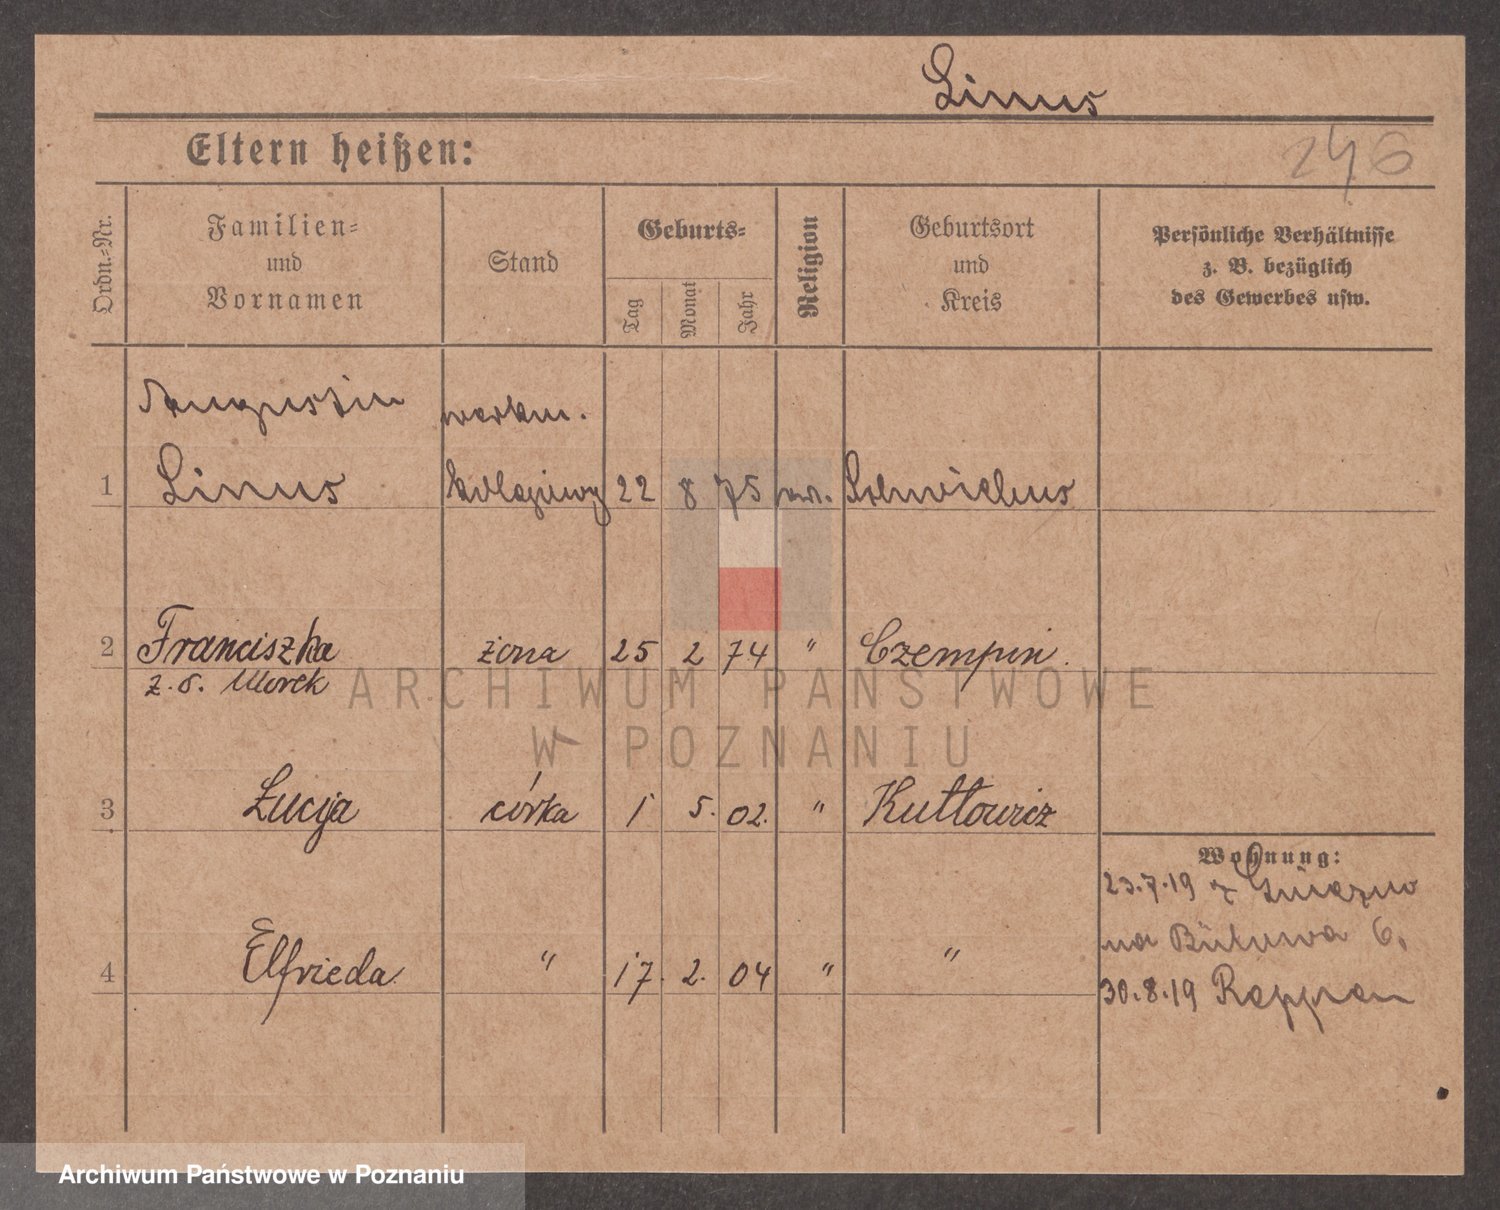 Linus
Eltern heißen:
246
Ordn.-Nr.
Familien- und Vornamen
Stand
Geburts-
Tag
Monat
Jahr
Religion
Geburtsort und Kreis
Persönliche Verhältnisse
z. B. bezüglich
des Gewerbes usw.
Augustin
1 Linus 22 8 75
2 Franciszka żona 25 2 74 " Czempin.
z. d. Morek
3 Łucija córka 1 5. 02. " Kuttowicz
Wohnung:
23.7.19 z Gniezno
na Bukowa 6.
4 Elfrieda " 17. 2. 04 " "
30.8.19
ARCHIWUM PAŃSTWOWE
W POZNANIU
Archiwum Państwowe w Poznaniu